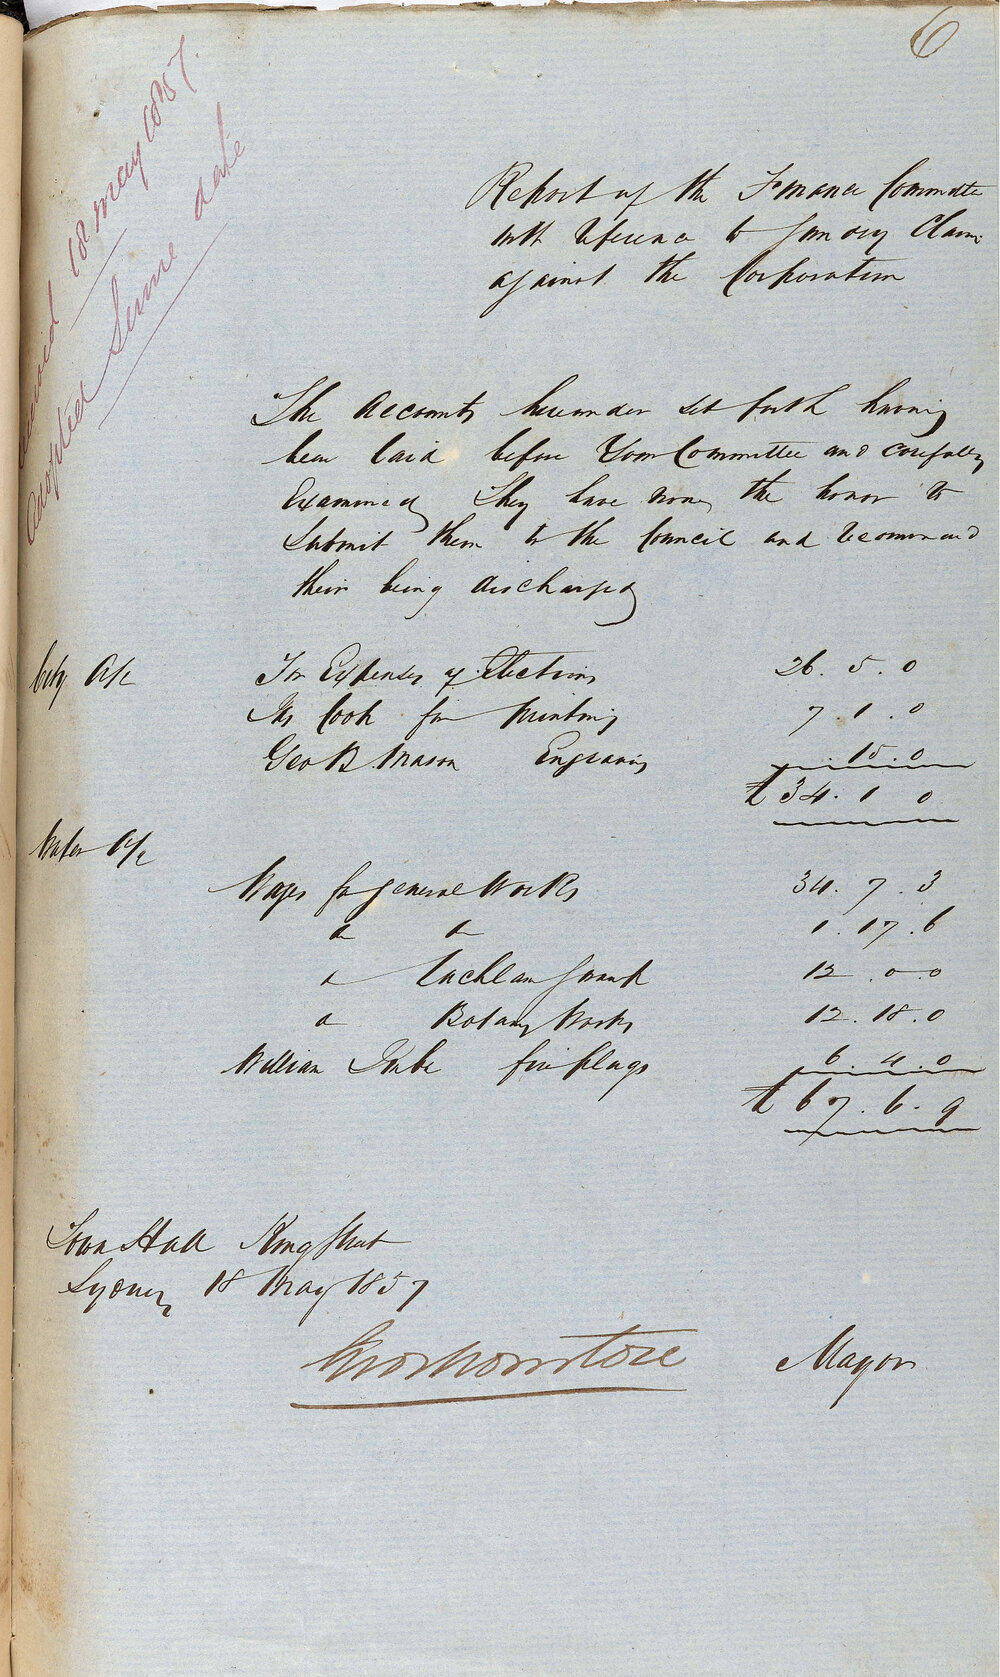 6
Received 18 May 1857.
Adopted Same date
Report of the Finance Committee
with reference to Sundry Claims
against the Corporation
The Accounts hereunder set forth having
been laid before Your Committee and carefully
Examined They have now, the honor to
Submit them to the Council and recommend
their being discharged
City A/c
For Expenses of Elections 26. 5. 0
Jas Cook for Printing 7. 1. 0
Geo B. Mason Engraving . 15. 0
£34. 1 0
Water A/c
Wages for general Works 34. 7. 3
" " 1. 17. 6
" Lachlan Swamp 12. 0. 0
" Botany Works 12. 18. 0
William fire plugs 6. 4. 0
£67. 6. 9
Town Hall King Street
Sydney 18 May 1857
Mayor